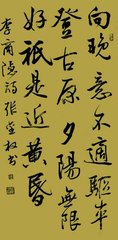 向晚意不適驅車
登古原夕陽無限
好祇是近黄昏
李商隱詩 張